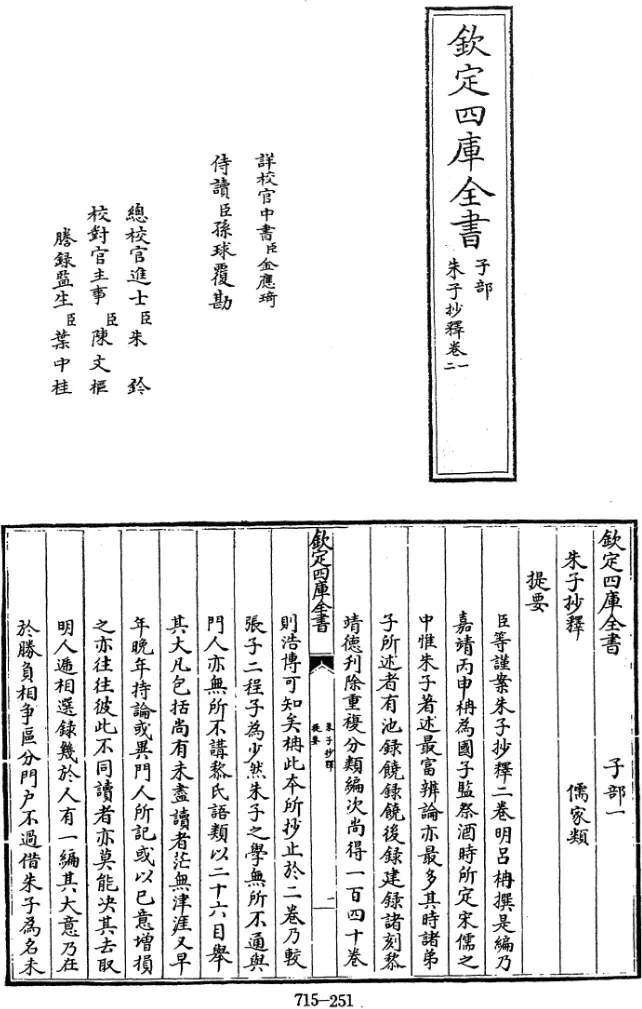 欽定四庫全書
子部
朱子抄釋卷一
二
詳校官中書臣金應琦
侍讀臣孫球覆勘
總校官進士臣朱鈐
校對官主事臣陳文樞
謄錄監生臣葉中桂
欽定四庫全書 子部一
朱子抄釋 儒家類
提要
臣等謹案朱子抄釋二卷明呂柟撰是編乃
嘉靖丙申柟為國子監祭酒時所定宋儒之
中惟朱子著述最富辨論亦最多其時諸弟
子所述者有池録饒録饒後録建録諸刻黎
靖德刋除重複分類編次尚得一百四十卷
欽定四庫全書
朱子抄釋
提要
一
則浩博可知矣柟此本所抄止於二卷乃較
張子二程子為少然朱子之學無所不通與
門人亦無所不講黎氏語類以二十六目舉
其大凡包括尚有未盡讀者茫無津涯又早
年晚年持論或異門人所記或以已意增損
之亦往往彼此不同讀者亦莫能决其去取
明人遞相選録幾於人有一編其大意乃在
於勝負相爭區分門户不過借朱子為名未
715-251